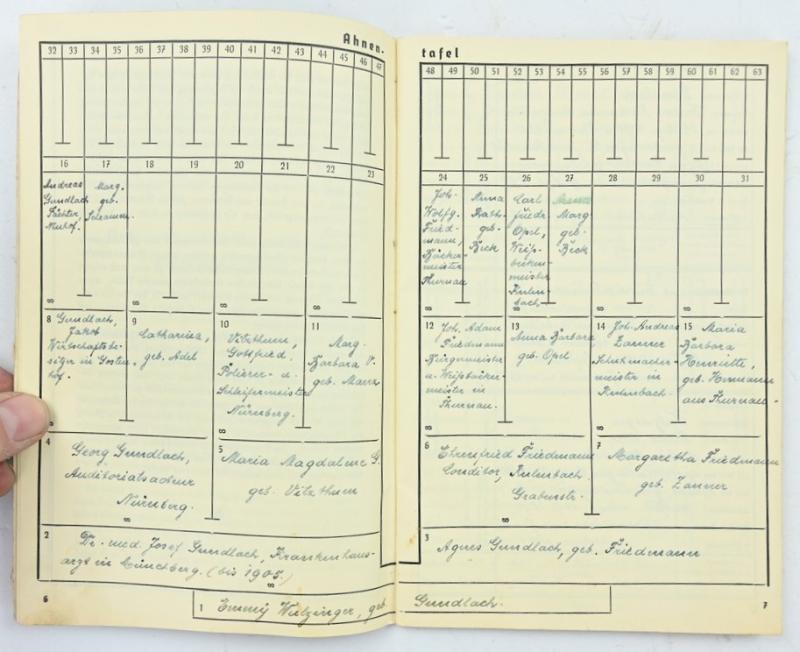 Ahnen-
tafel
32 33 34 35 36 37 38 39 40 41 42 43 44 45 46 47
48 49 50 51 52 53 54 55 56 57 58 59 60 61 62 63
16 17 18 19 20 21 22 23
24 25 26 27 28 29 30 31
Andreas
Gundlach
Pächter,
Neuhof.
Marg.
geb.
Joh.
Wolfg.
Fried-
mann,
Bäcker-
meister
Thurnau
Anna
Kath.
geb.
Beck
Carl
Friedr.
Opel,
Weiß-
bäcken-
meister
Kulm-
bach
Marg
geb.
Beck
8 Gundlach,
Jakob
Wirtschaftsbe-
sitzer in Gosten-
hof.
9
Catharina,
geb. Adel
10
Gottfried.
Polierer- u.
Schleifermeister
Nürnberg.
11
Marg.
Barbara V.
geb.
12 Joh. Adam
Friedmann
Bürgermeister
u. Weißbäcker-
meister in
Thurnau.
13
Anna Barbara
geb. Opel
14 Joh. Andreas
Zanner
Schuhmacher-
meister in
Kulmbach
15 Maria
Barbara
Henriette,
geb. Hermann
aus Thurnau.
4
Georg Gundlach,
Auditoriatsacteur
Nürnberg.
5
Maria Magdalene G.
geb.
6
Ehrenfried Friedmann
Conditor, Kulmbach
Grabenstr.
7
Margaretha Friedmann
geb. Zanner
2
Dr. med. Josef Gundlach, Krankenhaus-
arzt in Münchberg. (bis 1905.)
3
Agnes Gundlach, geb. Friedmann
1 Emmy Wilzinger, geb. Gundlach.
6
7